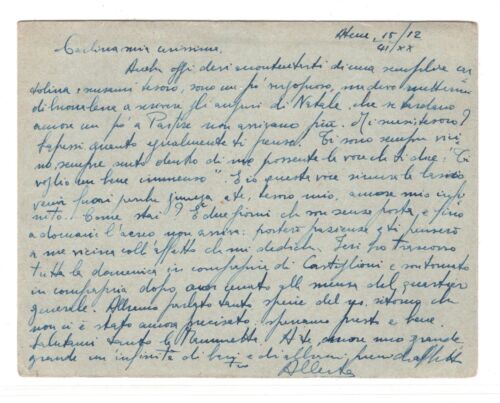 Atene, 15/12
41/XX
Carlina mia carissima,
Anche oggi devi accontentarti di una semplice car
tolina, scusami tesoro, sono un po' vigoroso, ma devo mettermi
di buona lena a scrivere gli auguri di Natale, che se tardano
ancora un po' a Partire non arrivano più. Mi scusi, tesoro?
Sapessi quanto egualmente ti penso. Ti sono sempre vici
no, sempre sento dentro di me possente la voce che ti dice: "Ti
voglio un bene immenso". E io questa voce sincera la lascio
venir fuori perché giunga a te, tesoro mio, amore mio infi
nito. Come stai? È due giorni che son senza posta, e fino
a domani l'aereo non arriva: porterò pazienza e ti penserò
a me vicina coll'affetto che mi dedichi. Ieri ho trascorso
tutta la domenica in compagnia di Castiglioni e son tornato
in compagnia dopo aver cenato alla mensa del quartier
generale. Abbiamo parlato tanto specie del ritorno che
non ci è stato ancora precisato. Speriamo presto e bene.
Salutami tanto la Mammetta. A te, amore mio grande
grande un'infinità di baci e di abbracci
Alberto